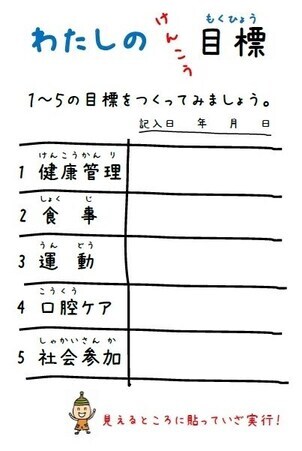 わたしの けんこう 目標
もくひょう
1～5の目標をつくってみましょう。
記入日 年 月 日
けんこうかんり
1 健康管理
しょくじ
2 食事
うんどう
3 運動
こうくう
4 口腔ケア
しゃかいさんか
5 社会参加
見えるところに貼っていざ実行!